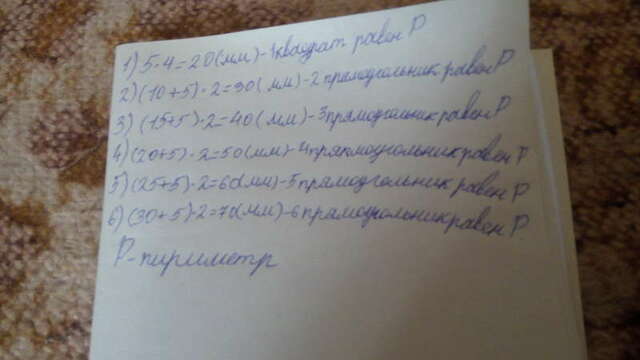 1) 5·4=20(мм)-1квадрат равен P
2) (10+5)·2=30(мм)-2прямоугольник равен P
3) (15+5)·2=40(мм)-3прямоугольник равен P
4) (20+5)·2=50(мм)-4прямоугольник равен P
5) (25+5)·2=60(мм)-5прямоугольник равен P
6) (30+5)·2=70(мм)-6прямоугольник равен P
P-пириметр